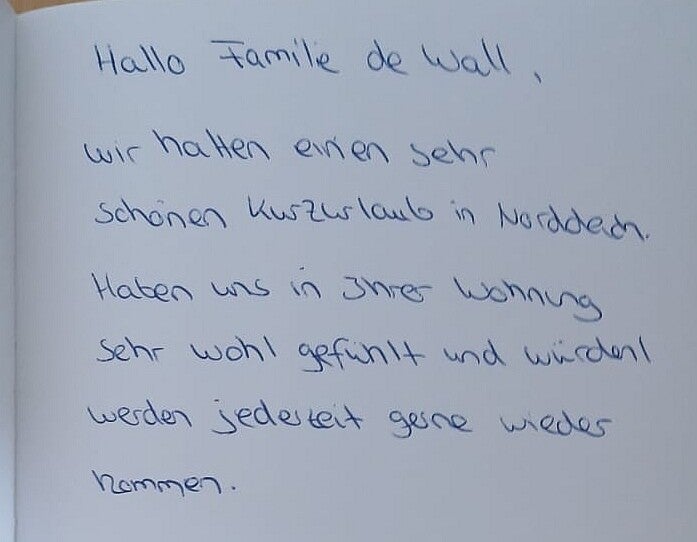 Hallo Familie de Wall,
wir hatten einen sehr
schönen Kurzurlaub in Norddeich.
Haben uns in Ihrer Wohnung
sehr wohl gefühlt und würden/
werden jederzeit gerne wieder
kommen.